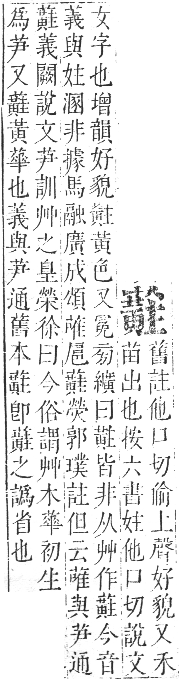 蘳
舊註他口切偷上聲好貌又禾
苗出也按六書妵他口切說文
女字也增韻好貌黈黃色又冕旁纊曰黈皆非从艸作蘳今音
義與妵溷非據馬融廣成頌扈蘳熒郭璞註但云蓶與芛通
蘳義闕說文芛訓艸之皇榮徐曰今俗謂艸木華初生
為芛又蘳黃華也義與芛通舊本蘳卽蘳之譌省也